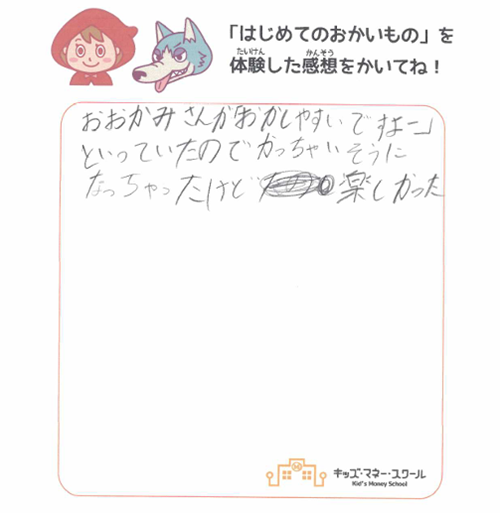 「はじめてのおかいもの」を
たいけん かんそう
体験した感想をかいてね!
おおかみさんが「おかしやすいですよー」
といっていたのでかっちゃいそうに
なっちゃったけど 楽しかった
キッズ・マネー・スクール
Kid's Money School